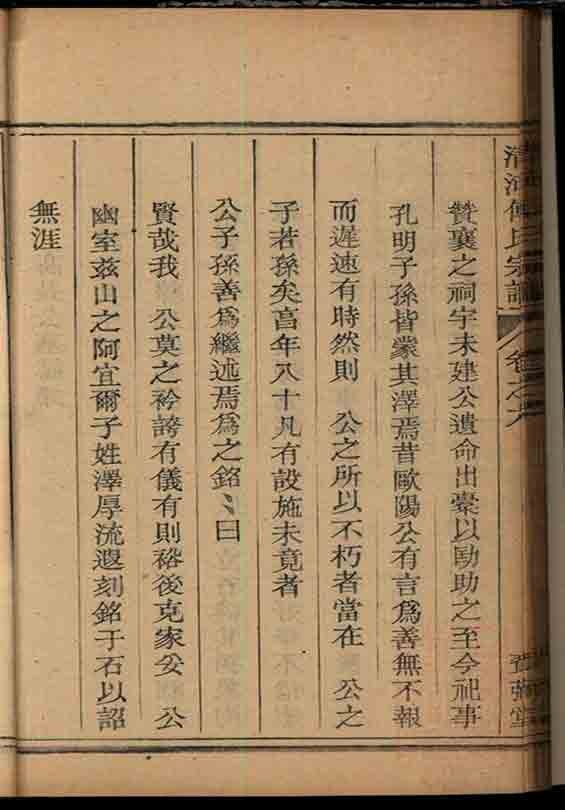 清河傅氏宗譜 卷之六
贊襄之祠宇未建公遺命出橐以勷助之至今祀事
孔明子孫皆蒙其澤焉昔歐陽公有言爲善無不報
而遲速有時然則 公之所以不朽者當在 公之
子若孫矣享年八十凡有設施未竟者
公子孫善爲繼述焉爲之銘〻曰
賢哉我 公莫之衿誇有儀有則裕後克家妥 公
幽室兹山之阿宜爾子姓澤厚流遐刻銘于石以詔
無涯